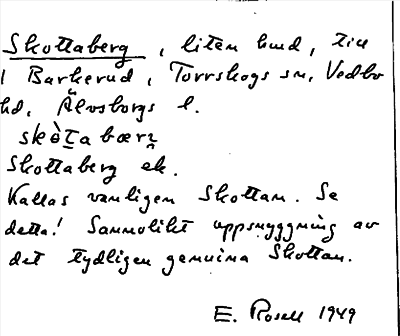 Skottaberg, liten lund, till
1 Barkerud, Torrskogs sn, Vedbo
hd, Älvsborgs l.
skò̱tabær
Skottaberg ek.
Kallas vanligen Skottan. Se
detta! Sannolikt uppsnyggning av
det tydligen genuina Skottan.
E. Rosell 1949